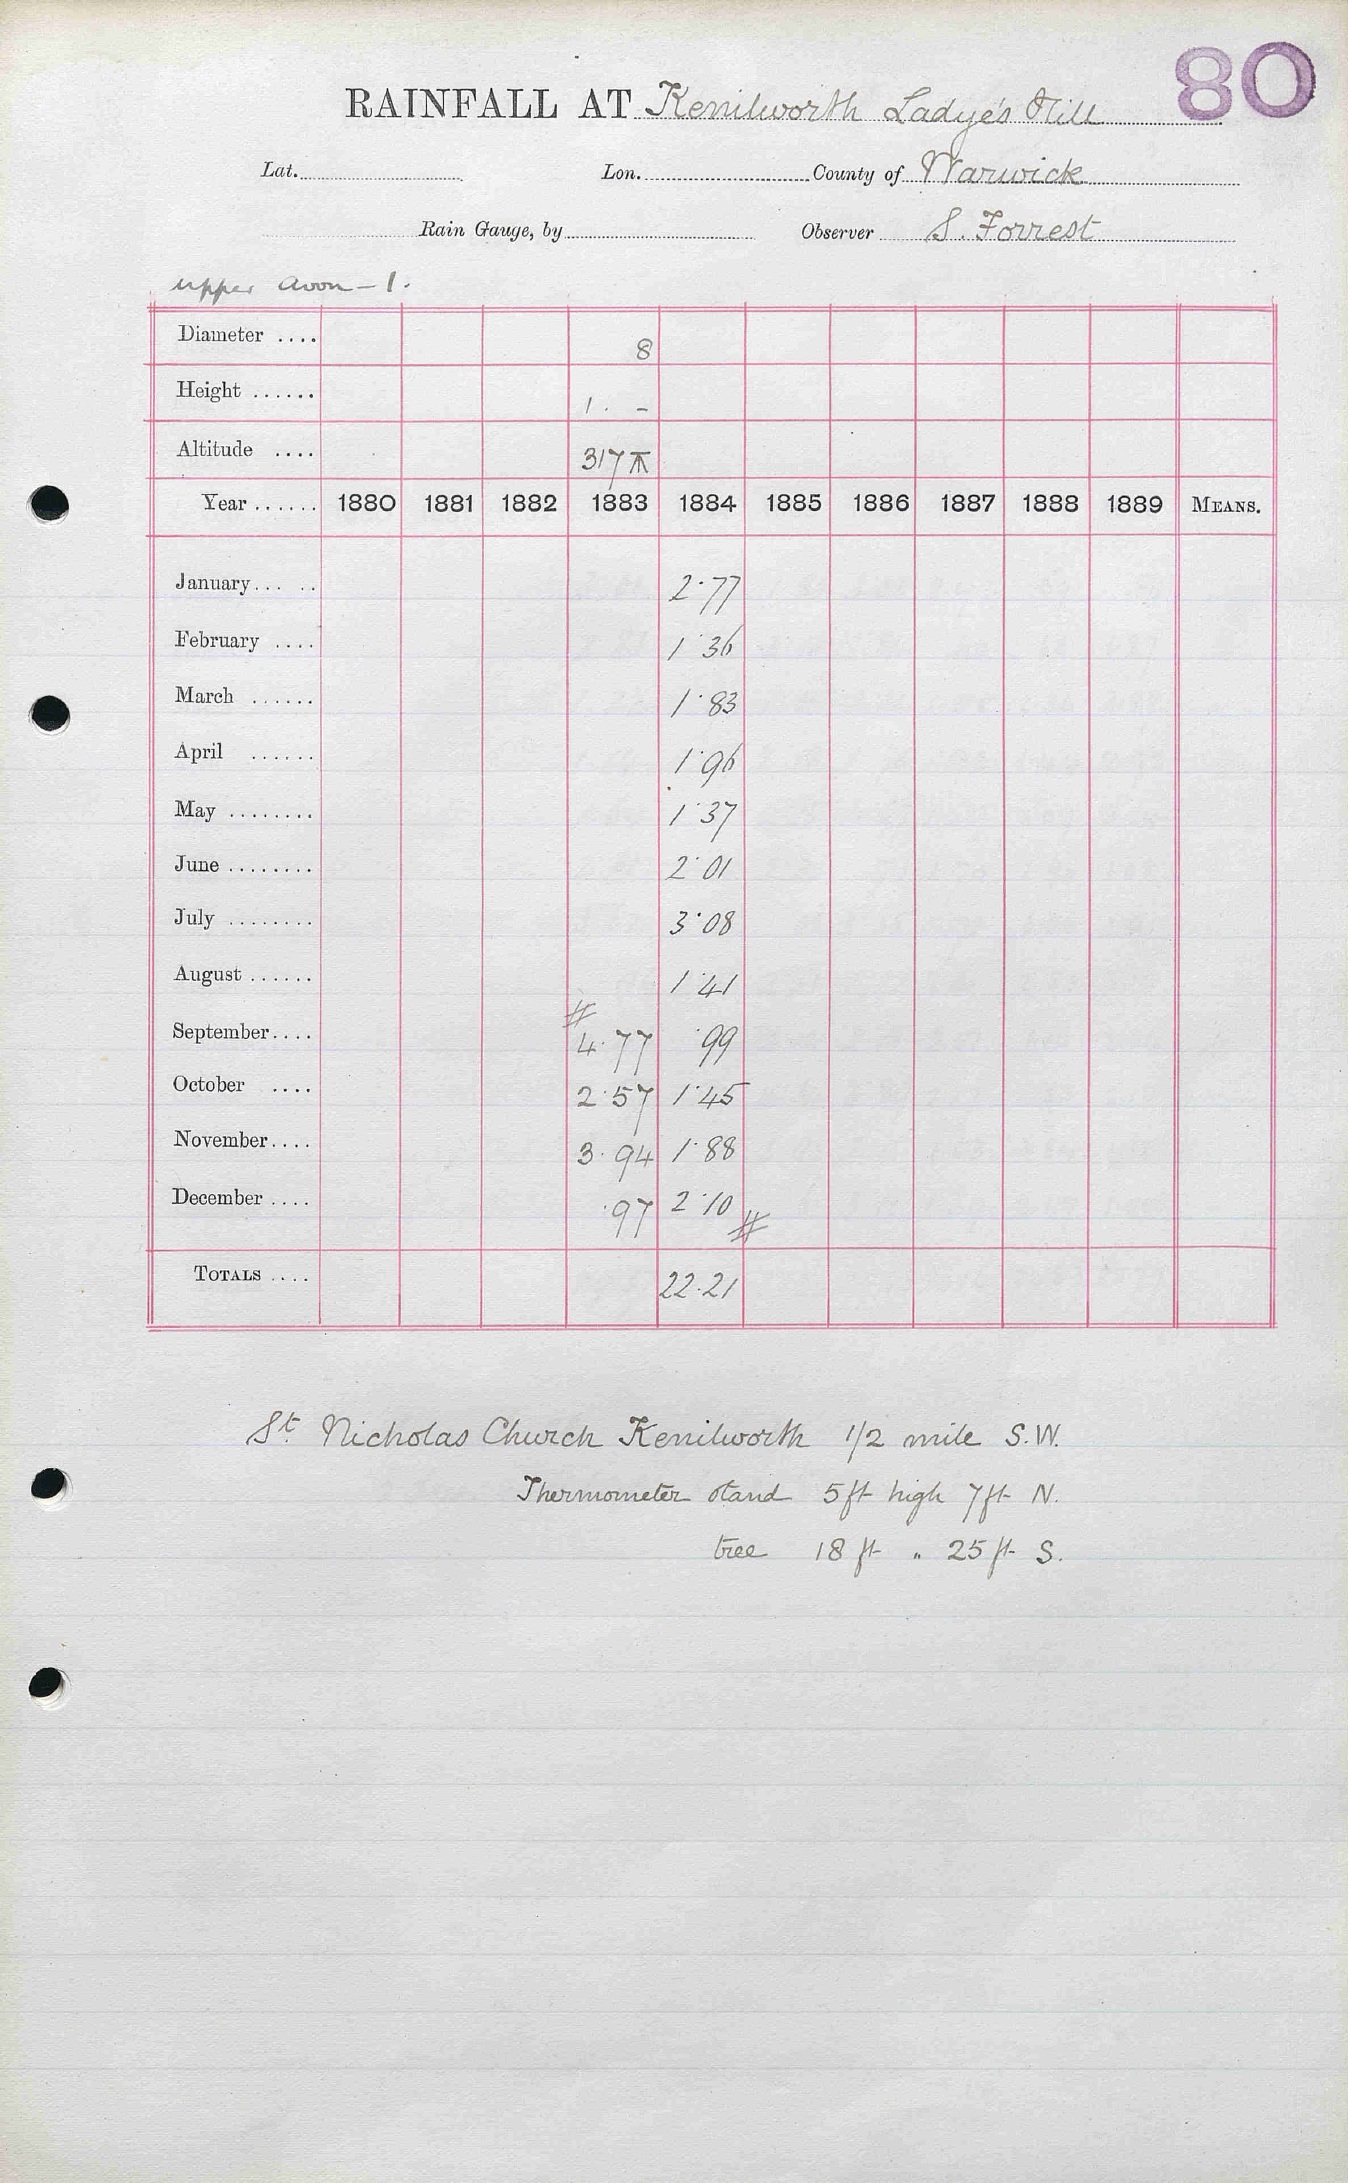 80
RAINFALL AT Kenilworth Ladye's Hill
Lat. Lon. County of Warwick
Rain Gauge, by Observer S. Forrest
upper avon – 1.
Diameter .... 8
Height ...... 1. -
Altitude .... 317
Year ...... 1880 1881 1882 1883 1884 1885 1886 1887 1888 1889 MEANS.
January... .. 2.77
February .... 1.36
March ...... 1.83
April ...... 1.96
May ........ 1.37
June ........ 2.01
July ........ 3.08
August ...... 1.41
September.... # 4.77 .99
October .... 2.57 1.45
November.... 3.94 1.88
December .... .97 2.10 #
TOTALS .... 22.21
St. Nicholas Church Kenilworth 1/2 mile S.W.
Thermometer stand 5 ft high 7 ft N.
tree 18 ft „ 25 ft S.